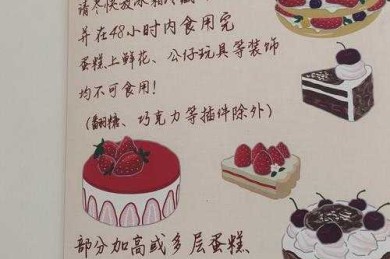 请尽快放冰箱冷藏
并在48小时内食用完
蛋糕上鲜花、公仔玩具等装饰
均不可食用!
(翻糖、巧克力等插件除外)
部分加高或多层蛋糕